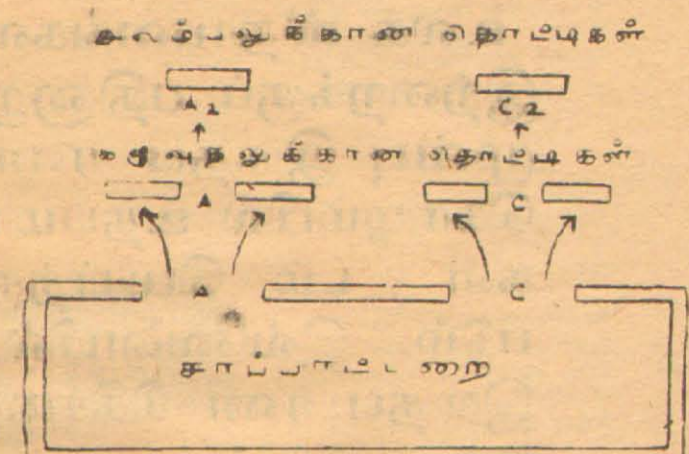 கலம்பலுக்கான தொட்டிகள்
A2 C2
கழுவுதலுக்கான தொட்டிகள்
A C
A C
சாப்பாட்டறை